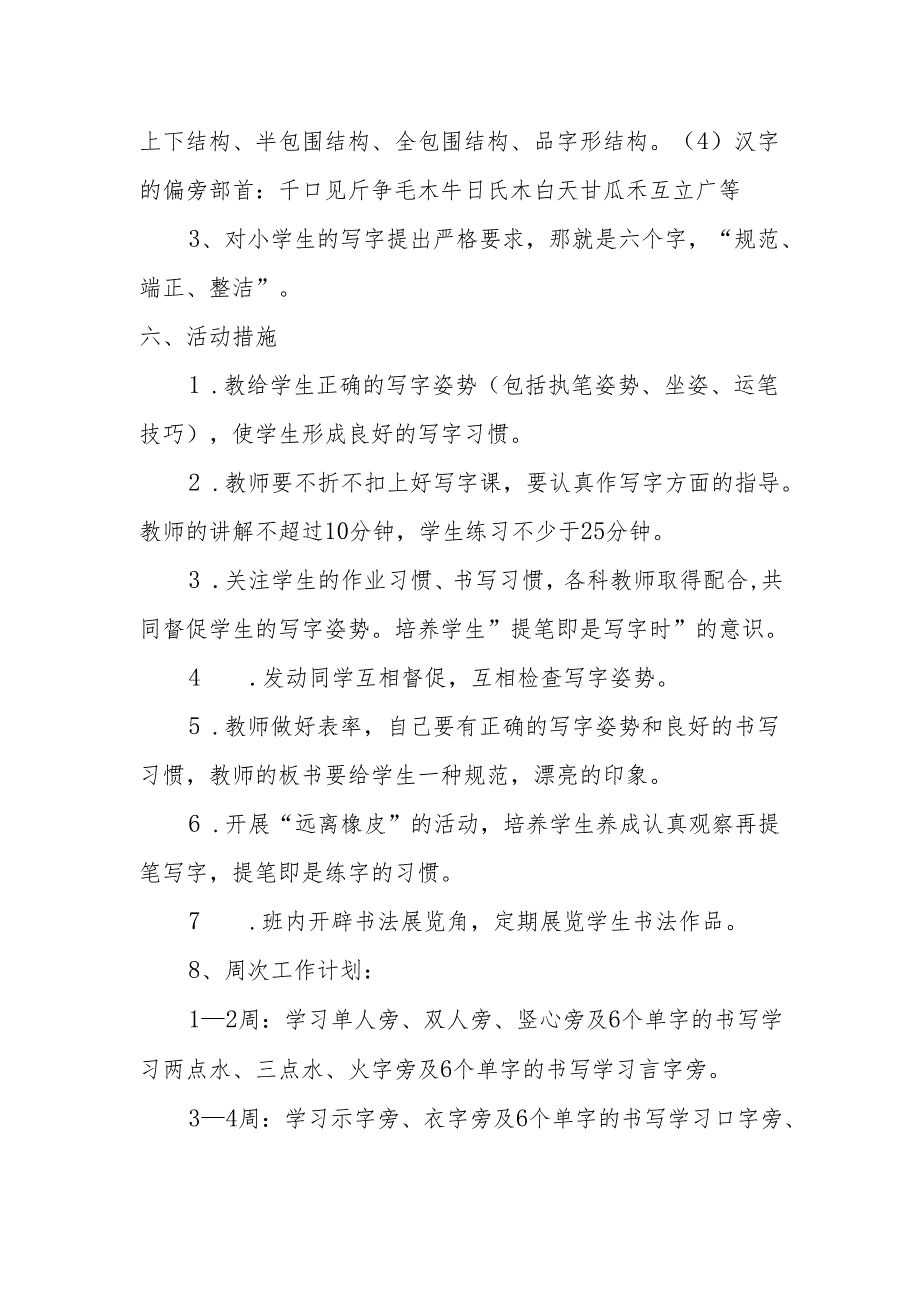 上下结构、半包围结构、全包围结构、品字形结构。（4）汉字
的偏旁部首：千口见斤争毛木牛日氏木白天甘瓜禾互立广等
3、对小学生的写字提出严格要求，那就是六个字，“规范、
端正、整洁”。
六、活动措施
1 .教给学生正确的写字姿势（包括执笔姿势、坐姿、运笔
技巧），使学生形成良好的写字习惯。
2 .教师要不折不扣上好写字课，要认真作写字方面的指导。
教师的讲解不超过10分钟，学生练习不少于25分钟。
3 .关注学生的作业习惯、书写习惯，各科教师取得配合,共
同督促学生的写字姿势。培养学生”提笔即是写字时”的意识。
4 .发动同学互相督促，互相检查写字姿势。
5 .教师做好表率，自己要有正确的写字姿势和良好的书写
习惯，教师的板书要给学生一种规范，漂亮的印象。
6 .开展“远离橡皮”的活动，培养学生养成认真观察再提
笔写字，提笔即是练字的习惯。
7 .班内开辟书法展览角，定期展览学生书法作品。
8、周次工作计划：
1—2周：学习单人旁、双人旁、竖心旁及6个单字的书写学
习两点水、三点水、火字旁及6个单字的书写学习言字旁。
3—4周：学习示字旁、衣字旁及6个单字的书写学习口字旁、